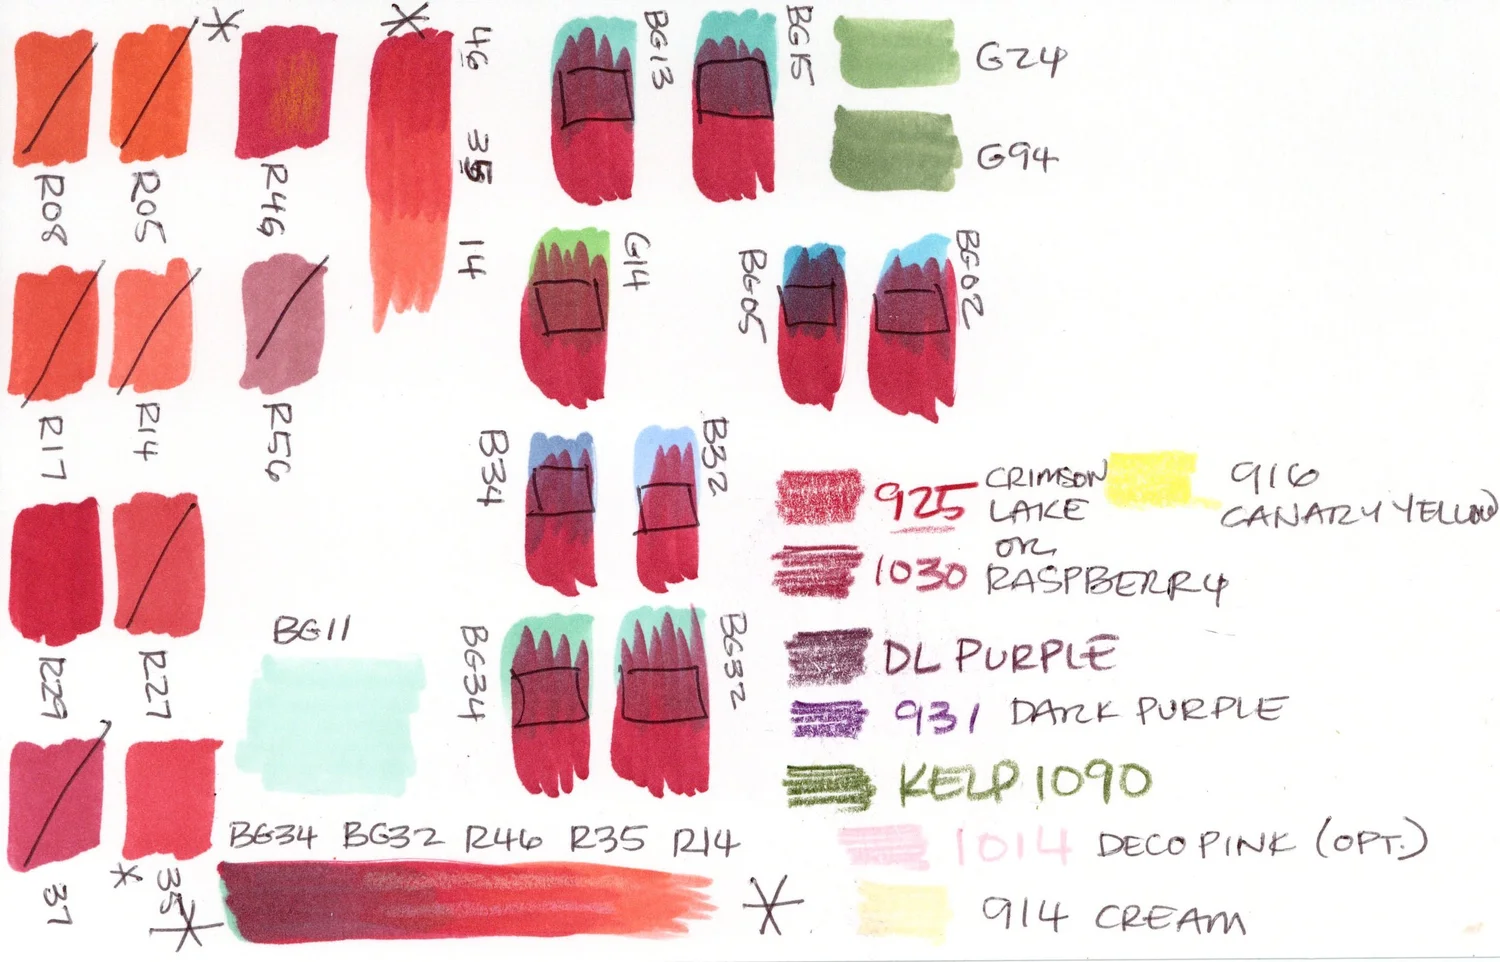 R08
R05
R46
46
35
14
BG13
BG15
G24
G94
R17
R14
R56
G14
BG05
BG02
R29
R27
B34
B32
925 CRIMSON LAKE
OR
1030 RASPBERRY
916
CANARY YELLOW
BG11
BG34
BG32
DL PURPLE
931 DARK PURPLE
KELP 1090
37
35
BG34 BG32 R46 R35 R14
1014 DECO PINK (OPT.)
914 CREAM